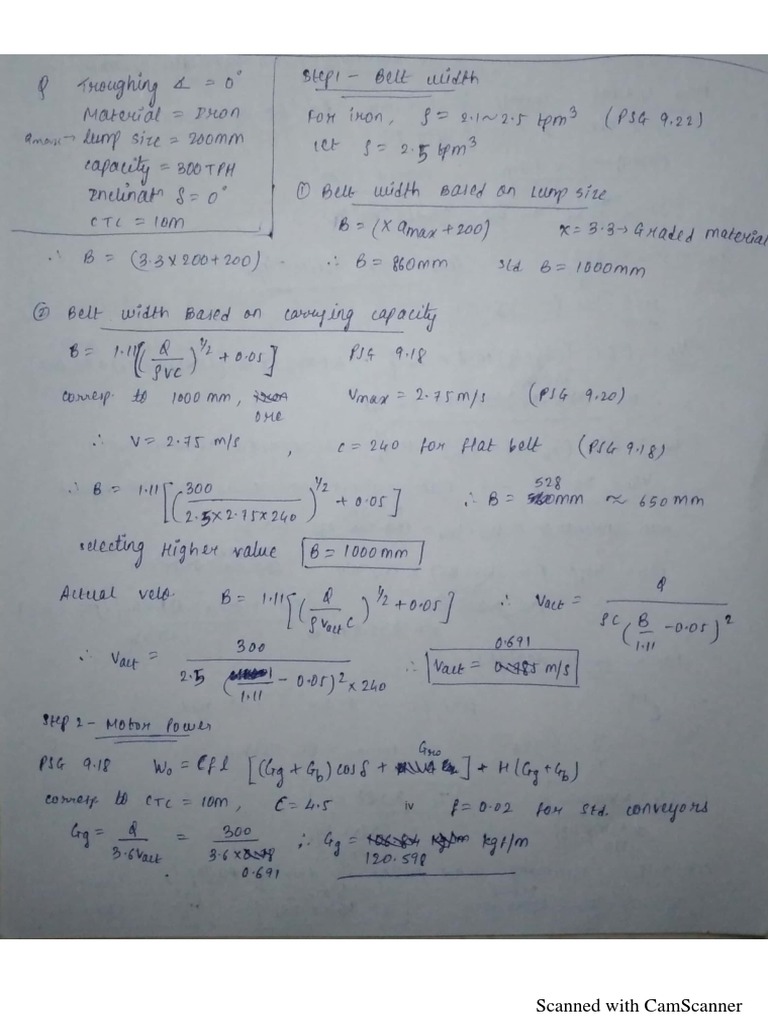 Q Troughing ∡ = 0°
Material = Iron
amax → Lump size = 200mm
Capacity = 300 TPH
Inclinatn δ = 0°
CTC = 10M
Step 1 - Belt width
For iron, ρ = 2.1 ~ 2.5 tpm³ (PSG 9.22)
let ρ = 2.5 tpm³
① Belt width based on lump size
B = (X amax + 200) x = 3.3 → Graded material
∴ B = (3.3 x 200 + 200) ∴ B = 860mm std B = 1000mm
② Belt width based on carrying capacity
B = 1.11[(Q/ρVC)^1/2 + 0.05] PSG 9.18
corresp. to 1000 mm, ore Vmax = 2.75 m/s (PSG 9.20)
∴ V = 2.75 m/s , C = 240 for flat belt (PSG 9.18)
∴ B = 1.11[(300/2.5 x 2.75 x 240)^1/2 + 0.05] ∴ B = 528 mm ≈ 650 mm
selecting Higher value B = 1000mm
Actual velo. B = 1.11[(Q/ρ Vact C)^1/2 + 0.05] ∴ Vact = Q/ρC(B/1.11 - 0.05)²
∴ Vact = 300/2.5 (1/1.11 - 0.05)² x 240 ∴ Vact = 0.691 m/s
Step 2 - Motor Power
PSG 9.18 Wo = Cfl [(Gg + Gb) cosδ + Gro] + H(Gg + Gb)
corresp to CTC = 10m, C = 4.5 iv f = 0.02 for std. conveyors
Gg = Q/3.6Vact = 300/3.6 x 0.691 ∴ Gg = 120.598 kgf/m
Scanned with CamScanner